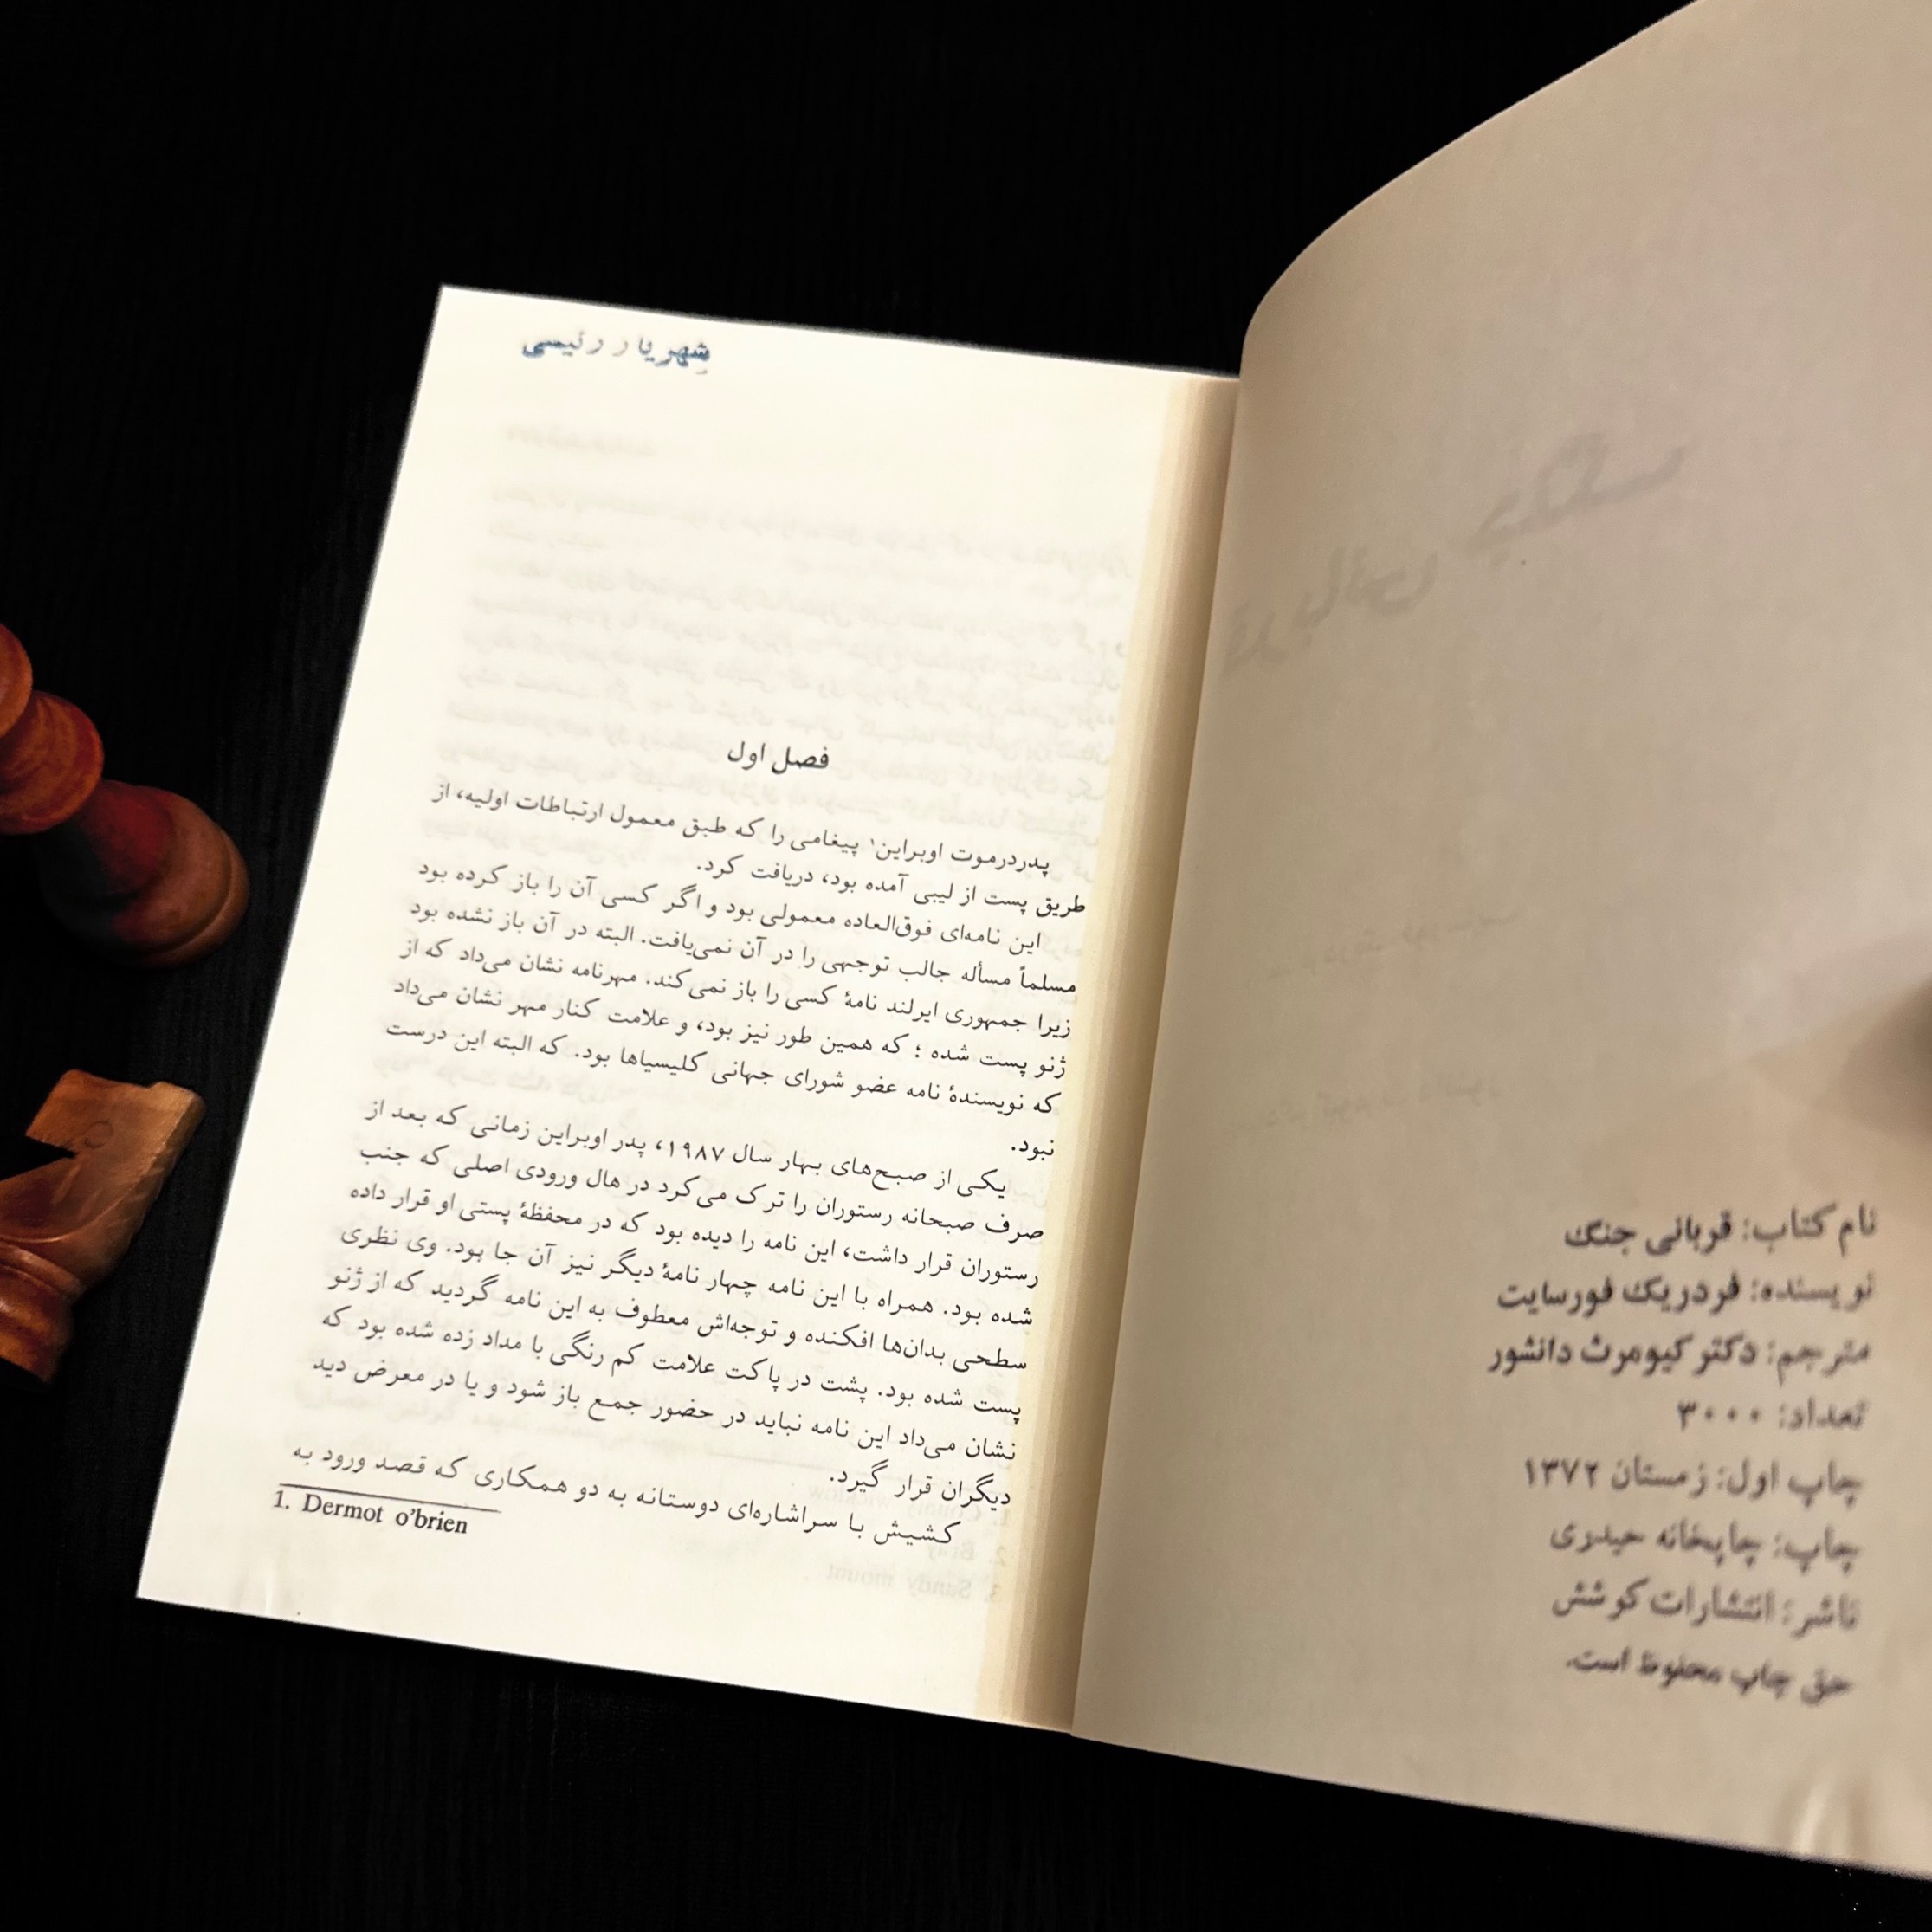 نام کتاب: قربانی جنگ
نویسنده: فردریک فورسایت
مترجم: دکتر کیومرث دانشور
تعداد: ۳۰۰۰
چاپ اول: زمستان ۱۳۷۲
چاپ: چاپخانه حیدری
ناشر: انتشارات کوشش
حق چاپ محفوظ است.
شهریار رئیسی
فصل اول
پدردرموت اوبراین۱ پیغامی را که طبق معمول ارتباطات اولیه، از
طریق پست از لیبی آمده بود، دریافت کرد.
این نامه‌ای فوق‌العاده معمولی بود و اگر کسی آن را باز کرده بود
مسلماً مسأله جالب توجهی را در آن نمی‌یافت. البته در آن باز نشده بود
زیرا جمهوری ایرلند نامهٔ کسی را باز نمی‌کند. مهرنامه نشان می‌داد که از
ژنو پست شده ؛ که همین طور نیز بود، و علامت کنار مهر نشان می‌داد
که نویسندهٔ نامه عضو شورای جهانی کلیسیاها بود. که البته این درست
نبود.
یکی از صبح‌های بهار سال ۱۹۸۷، پدر اوبراین زمانی که بعد از
صرف صبحانه رستوران را ترک می‌کرد در هال ورودی اصلی که جنب
رستوران قرار داشت، این نامه را دیده بود که در محفظهٔ پستی او قرار داده
شده بود. همراه با این نامه چهار نامهٔ دیگر نیز آن جا بود. وی نظری
سطحی بدان‌ها افکنده و توجه‌اش معطوف به این نامه گردید که از ژنو
پست شده بود. پشت در پاکت علامت کم رنگی با مداد زده شده بود که
نشان می‌داد این نامه نباید در حضور جمع باز شود و یا در معرض دید
دیگران قرار گیرد.
کشیش با سراشاره‌ای دوستانه به دو همکاری که قصد ورود به
1. Dermot o’brien